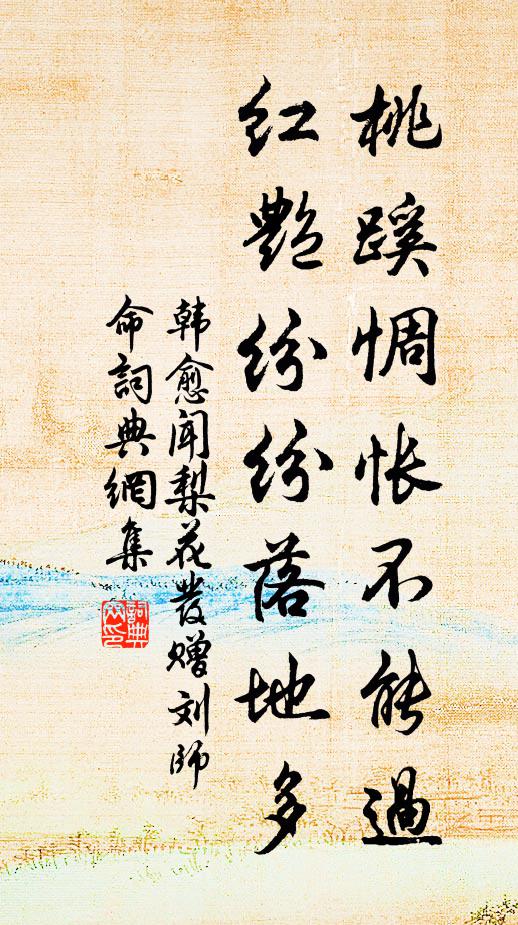 桃蹊惆怅不能過
红艷纷纷落地多
韩愈闻梨花發赠刘師
命詞典網集
詞典